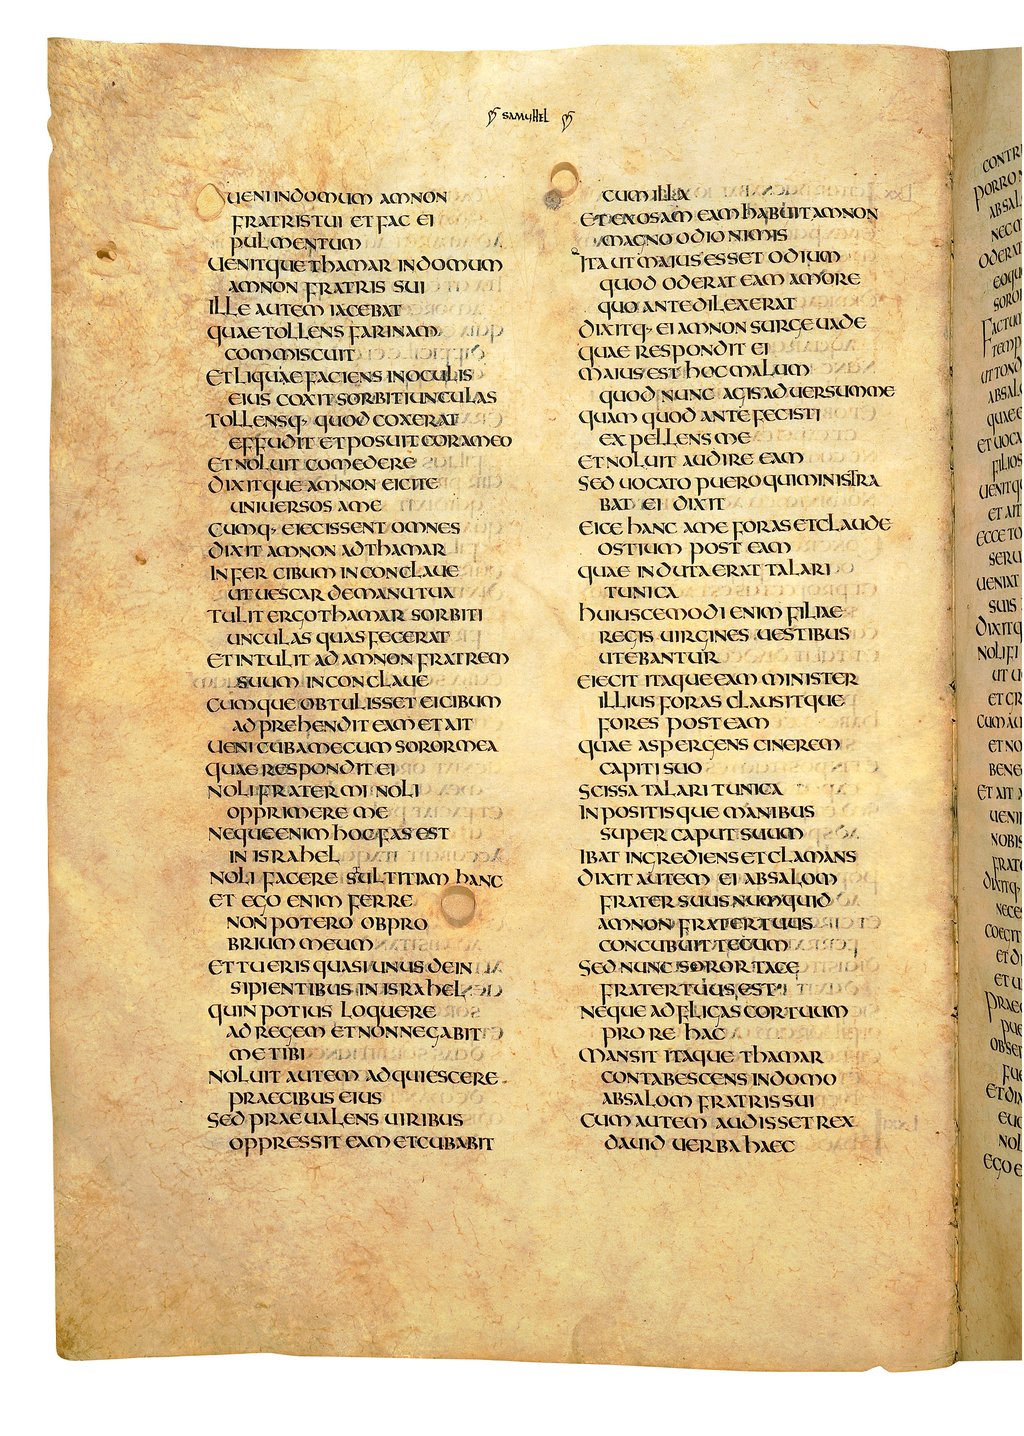 SAMUHEL
UENI IN DOMUM AMNON
FRATRIS TUI ET FAC EI
PULMENTUM
UENITQUE THAMAR IN DOMUM
AMNON FRATRIS SUI
ILLE AUTEM IACEBAT
QUAE TOLLENS FARINAM
COMMISCUIT
ET LIQUAEFACIENS IN OCULIS
EIUS COXIT SORBITIUNCULAS
TOLLENSQ· QUOD COXERAT
EFFUDIT ET POSUIT CORAM EO
ET NOLUIT COMEDERE
DIXITQUE AMNON EICITE
UNIUERSOS A ME
CUMQ· EIECISSENT OMNES
DIXIT AMNON AD THAMAR
INFER CIBUM IN CONCLAUE
UT UESCAR DE MANU TUA
TULIT ERGO THAMAR SORBITI
UNCULAS QUAS FECERAT
ET INTULIT AD AMNON FRATREM
SUUM IN CONCLAUE
CUMQUE OBTULISSET EI CIBUM
ADPREHENDIT EAM ET AIT
UENI CUBA MECUM SOROR MEA
QUAE RESPONDIT EI
NOLI FRATER MI NOLI
OPPRIMERE ME
NEQUE ENIM HOC FAS EST
IN ISRAHEL
NOLI FACERE SULTITIAM HANC
ET EGO ENIM FERRE
NON POTERO OBPRO
BRIUM MEUM
ET TU ERIS QUASI UNUS DE IN
SIPIENTIBUS IN ISRAHEL
QUIN POTIUS LOQUERE
AD REGEM ET NON NEGABIT
ME TIBI
NOLUIT AUTEM ADQUIESCERE
PRAECIBUS EIUS
SED PRAEUALENS UIRIBUS
OPPRESSIT EAM ET CUBABIT
CUM ILLA
ET EXOSAM EAM HABUIT AMNON
MAGNO ODIO NIMIS
ITA UT MAIUS ESSET ODIUM
QUOD ODERAT EAM AMORE
QUO ANTE DILEXERAT
DIXITQ· EI AMNON SURGE UADE
QUAE RESPONDIT EI
MAIUS EST HOC MALUM
QUOD NUNC AGIS ADUERSUM ME
QUAM QUOD ANTE FECISTI
EXPELLENS ME
ET NOLUIT AUDIRE EAM
SED UOCATO PUERO QUI MINISTRA
BAT EI DIXIT
EICE HANC A ME FORAS ET CLAUDE
OSTIUM POST EAM
QUAE INDUTA ERAT TALARI
TUNICA
HUIUSCEMODI ENIM FILIAE
REGIS UIRGINES UESTIBUS
UTEBANTUR
EIECIT ITAQUE EAM MINISTER
ILLIUS FORAS CLAUSITQUE
FORES POST EAM
QUAE ASPERGENS CINEREM
CAPITI SUO
SCISSA TALARI TUNICA
INPOSITISQUE MANIBUS
SUPER CAPUT SUUM
IBAT INGREDIENS ET CLAMANS
DIXIT AUTEM EI ABSALOM
FRATER SUUS NUMQUID
AMNON FRATER TUUS
CONCUBUIT TECUM
SED NUNC SOROR TACE
FRATER TUUS EST
NEQUE ADFLIGAS COR TUUM
PRO RE HAC
MANSIT ITAQUE THAMAR
CONTABESCENS IN DOMO
ABSALOM FRATRIS SUI
CUM AUTEM AUDISSET REX
DAUID UERBA HAEC
CONTRI
PORRO
ABSAL
ODERAT
EOQU
SOROR
FACTUM
TEMP
UT TOND
ABSAL
QUAE E
ET UOCA
FILIOS
UENITQU
ET AIT
ECCE TO
SERU
UENIAT
SUIS
DIXITQ
NOLI FI
UT U
ET CR
ET NO
BENE
ET AIT A
UENI
NOBIS
FRAT
DIXITQ·
NECES
COEGIT
ET DI
ET U
PRAE
PUE
OBSER
FUE
ET DI
EUM
NOL
EGO E